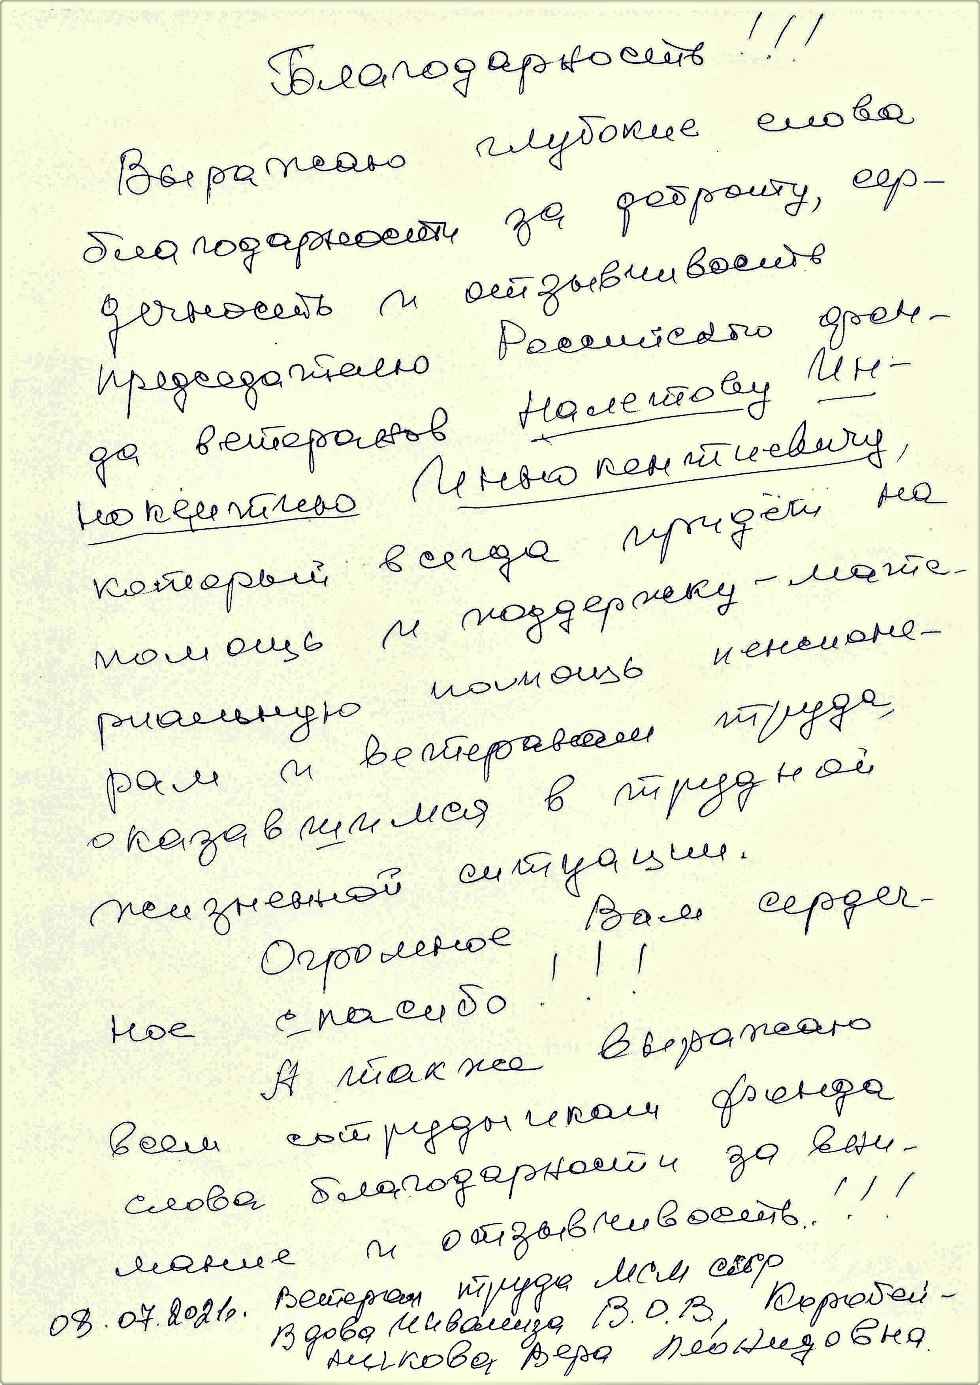 Благодарность!!!
Выражаю глубокие слова
благодарности за доброту, сер-
дечность и отзывчивость
председателю Российского фон-
да ветеранов Налетову Ин-
нокентию Иннокентиевичу,
который всегда придёт на
помощь и поддержку - мате-
риальную помощь пенсионе-
рам и ветеранам труда,
оказавшимся в трудной
жизненной ситуации.
Огромное Вам сердеч-
ное спасибо!!!
А также выражаю
всем сотрудникам фонда
слова благодарности за вни-
мание и отзывчивость..!!!
08.07.2021г. Ветеран труда МСМ СССР
Вдова Инвалида В.О.В., Коробей-
никова Вера Леонидовна.